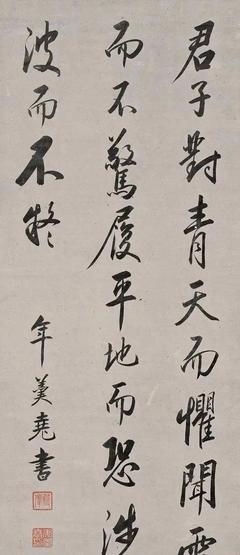 君子對青天而懼聞
而不驚履平地而恐涉
波而不疑
年羹堯書